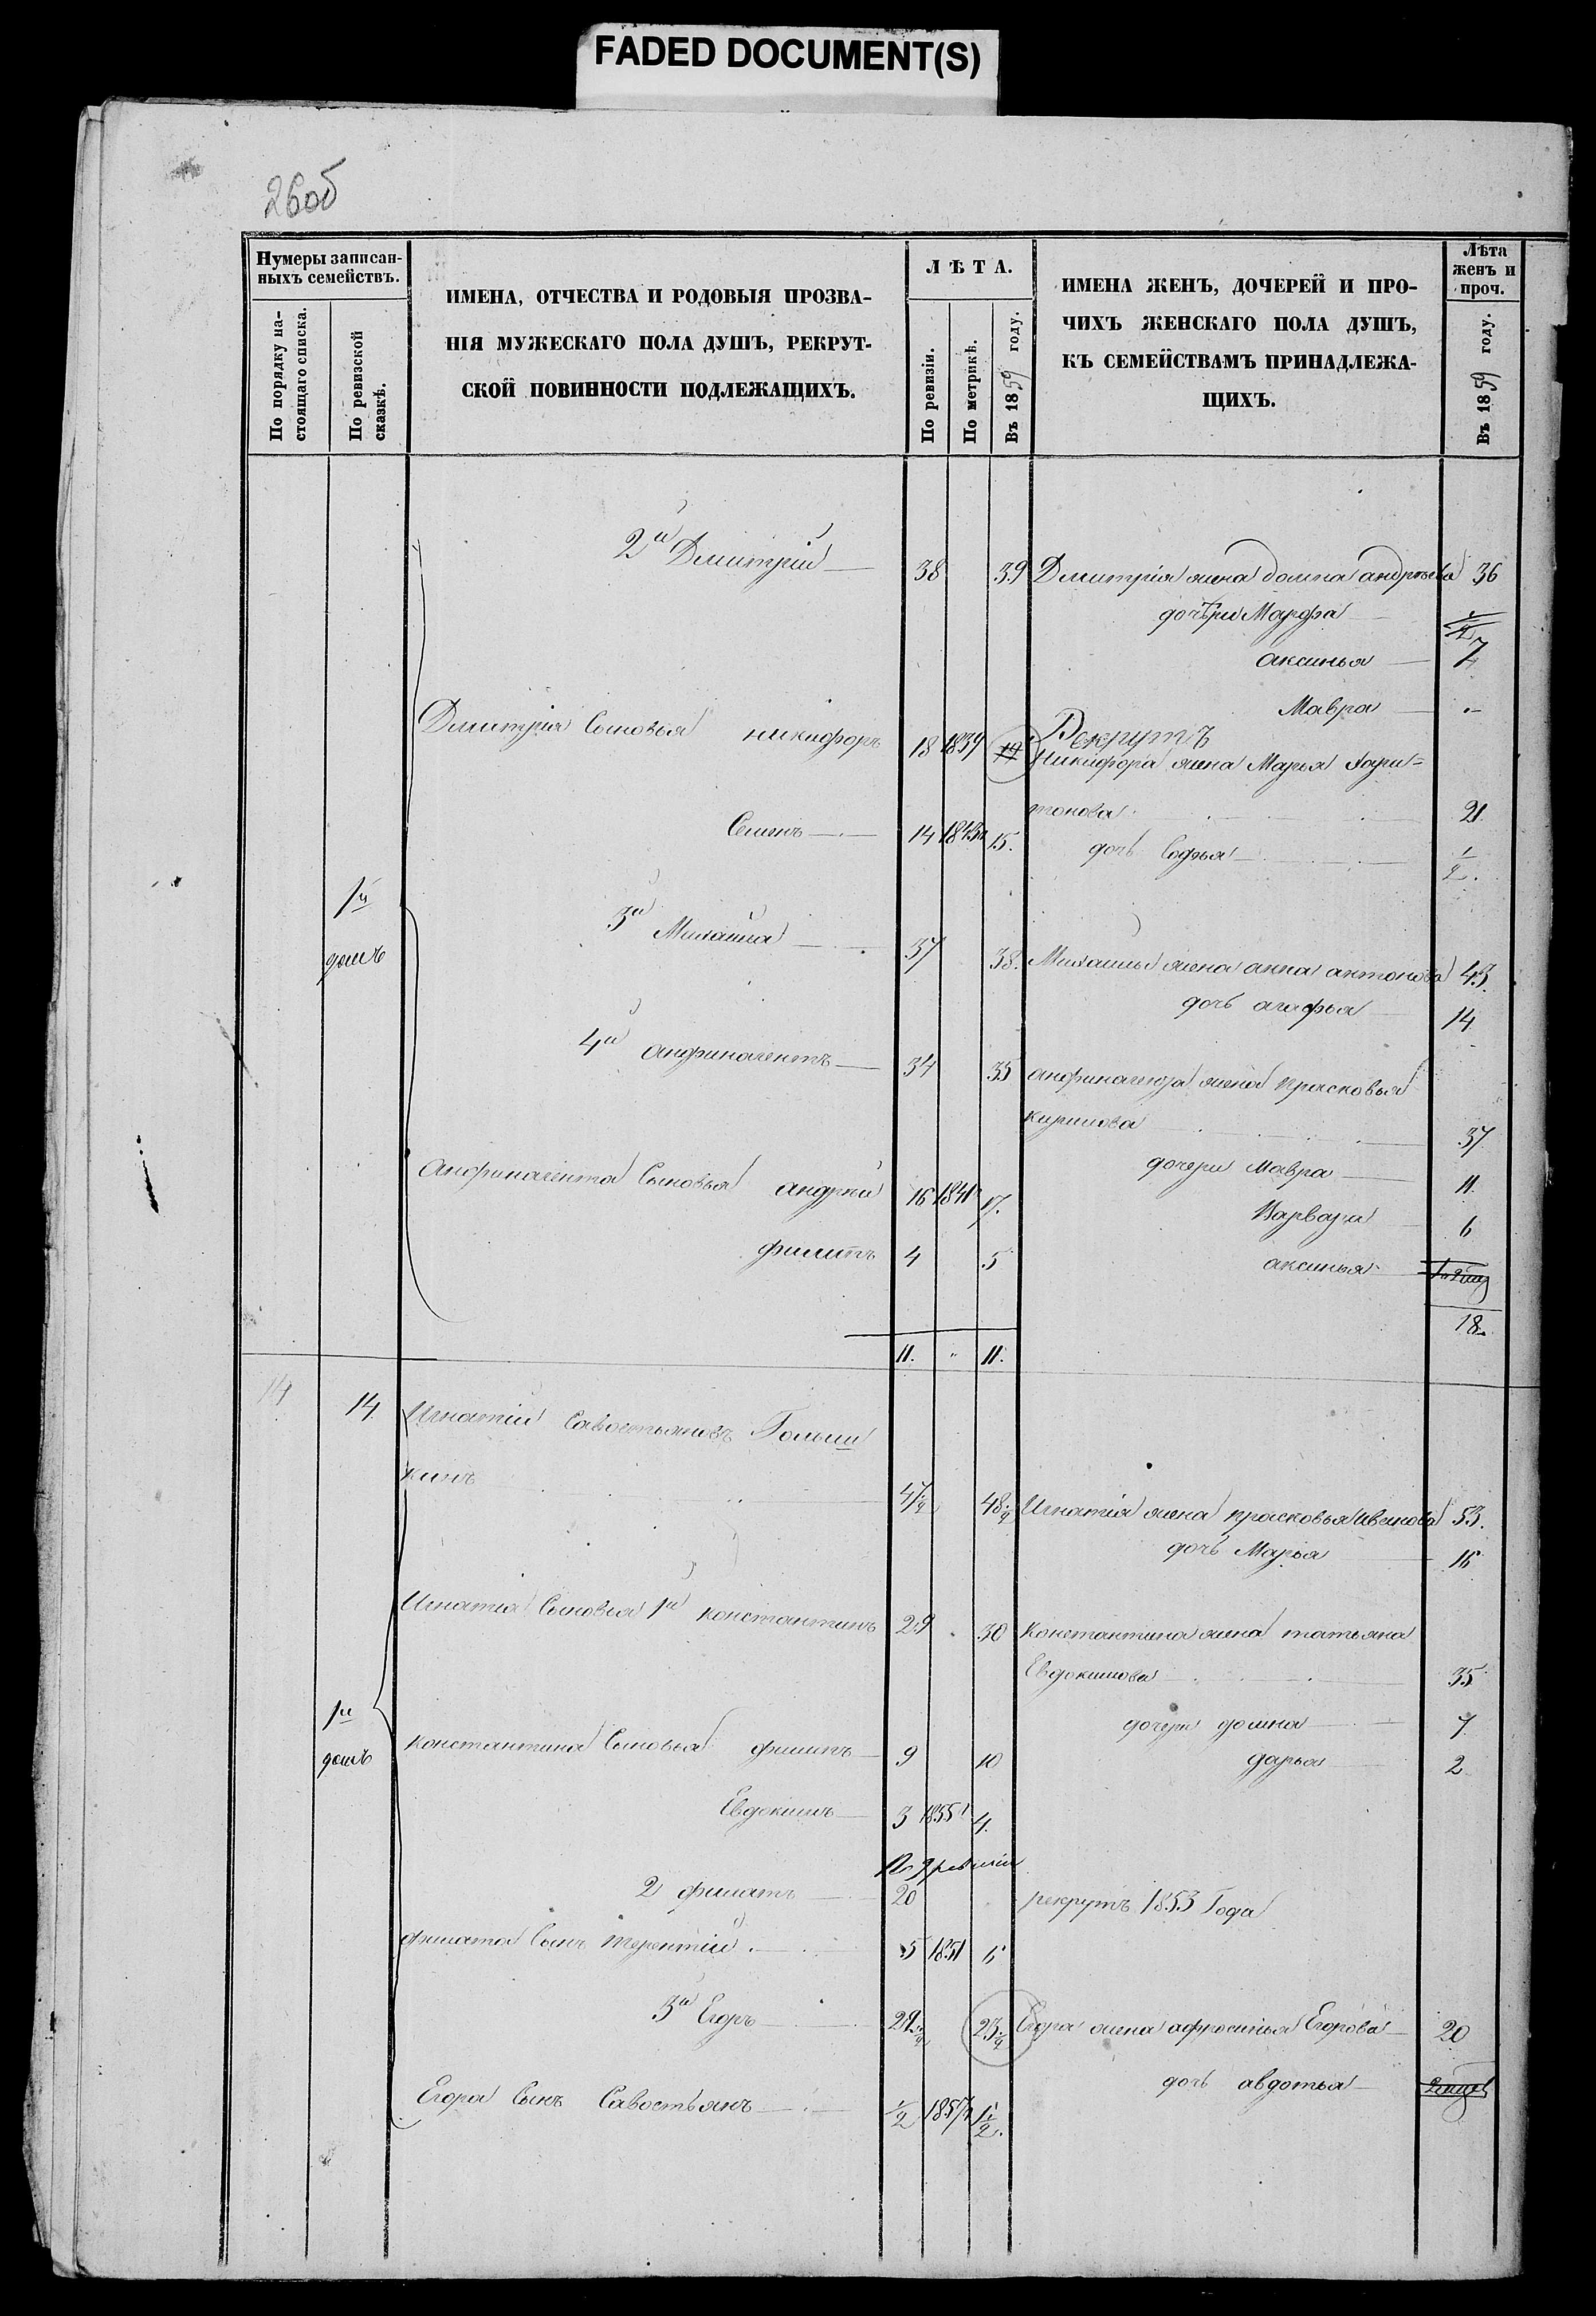 FADED DOCUMENT(S)
26об
Нумеры записан-
ныхъ семействъ.
По порядку на-
стоящаго списка.
По ревизской
сказкѣ.
ИМЕНА, ОТЧЕСТВА И РОДОВЫЯ ПРОЗВА-
НІЯ МУЖЕСКАГО ПОЛА ДУШЪ, РЕКРУТ-
СКОЙ ПОВИННОСТИ ПОДЛЕЖАЩИХЪ.
ЛѢТА.
По ревизіи.
По метрикѣ.
Въ 1859 году.
ИМЕНА ЖЕНЪ, ДОЧЕРЕЙ И ПРО-
ЧИХЪ ЖЕНСКАГО ПОЛА ДУШЪ,
КЪ СЕМЕЙСТВАМЪ ПРИНАДЛЕЖА-
ЩИХЪ.
Лѣта
женъ и
проч.
Въ 1859 году.
2й Дмитрій 38 39 Дмитрія жена домна андрѣева 36
дочери Марфа
аксинья 7
Мавра
Рекрутъ
Дмитрія Сыновья никифоръ 18 1839 19 Никифора жена Марья Хари-
тонова 21
Семенъ 14 1843 15. дочь Софья 1/2.
1й
домъ
3й Михайла 37 38. Михайлы жена анна антонова 43.
дочь агафья 14
4й анфиногентъ 34 35 анфиногента жена прасковья
кирилова 37
дочери Мавра 11
Анфиногента Сыновья андрей 16 1841 17.
Варвара 6
филипъ 4 5
аксинья
18.
11. " 11.
14 14. Игнатій Савостьяновъ Голыш
кинъ 47 48 Игнатія жена прасковья Иванова 53.
дочь Марья 16
Игнатія Сыновья 1й константинъ 29 30 Константина жена татьяна
Евдокимова 35
1й
домъ
дочери домна 7
константина Сыновья филипъ 9 10
дарья 2
Евдокимъ 3 1855 4.
По 9 ревизіи
2 филатъ 20 рекрутъ 1853 Года
филата Сынъ терентій 5 1851 6
3й Егоръ 23 Егора жена афросинья Егорова 20
дочь авдотья
Егора Сынъ Савостьянъ 1/2 1857 1 1/2.